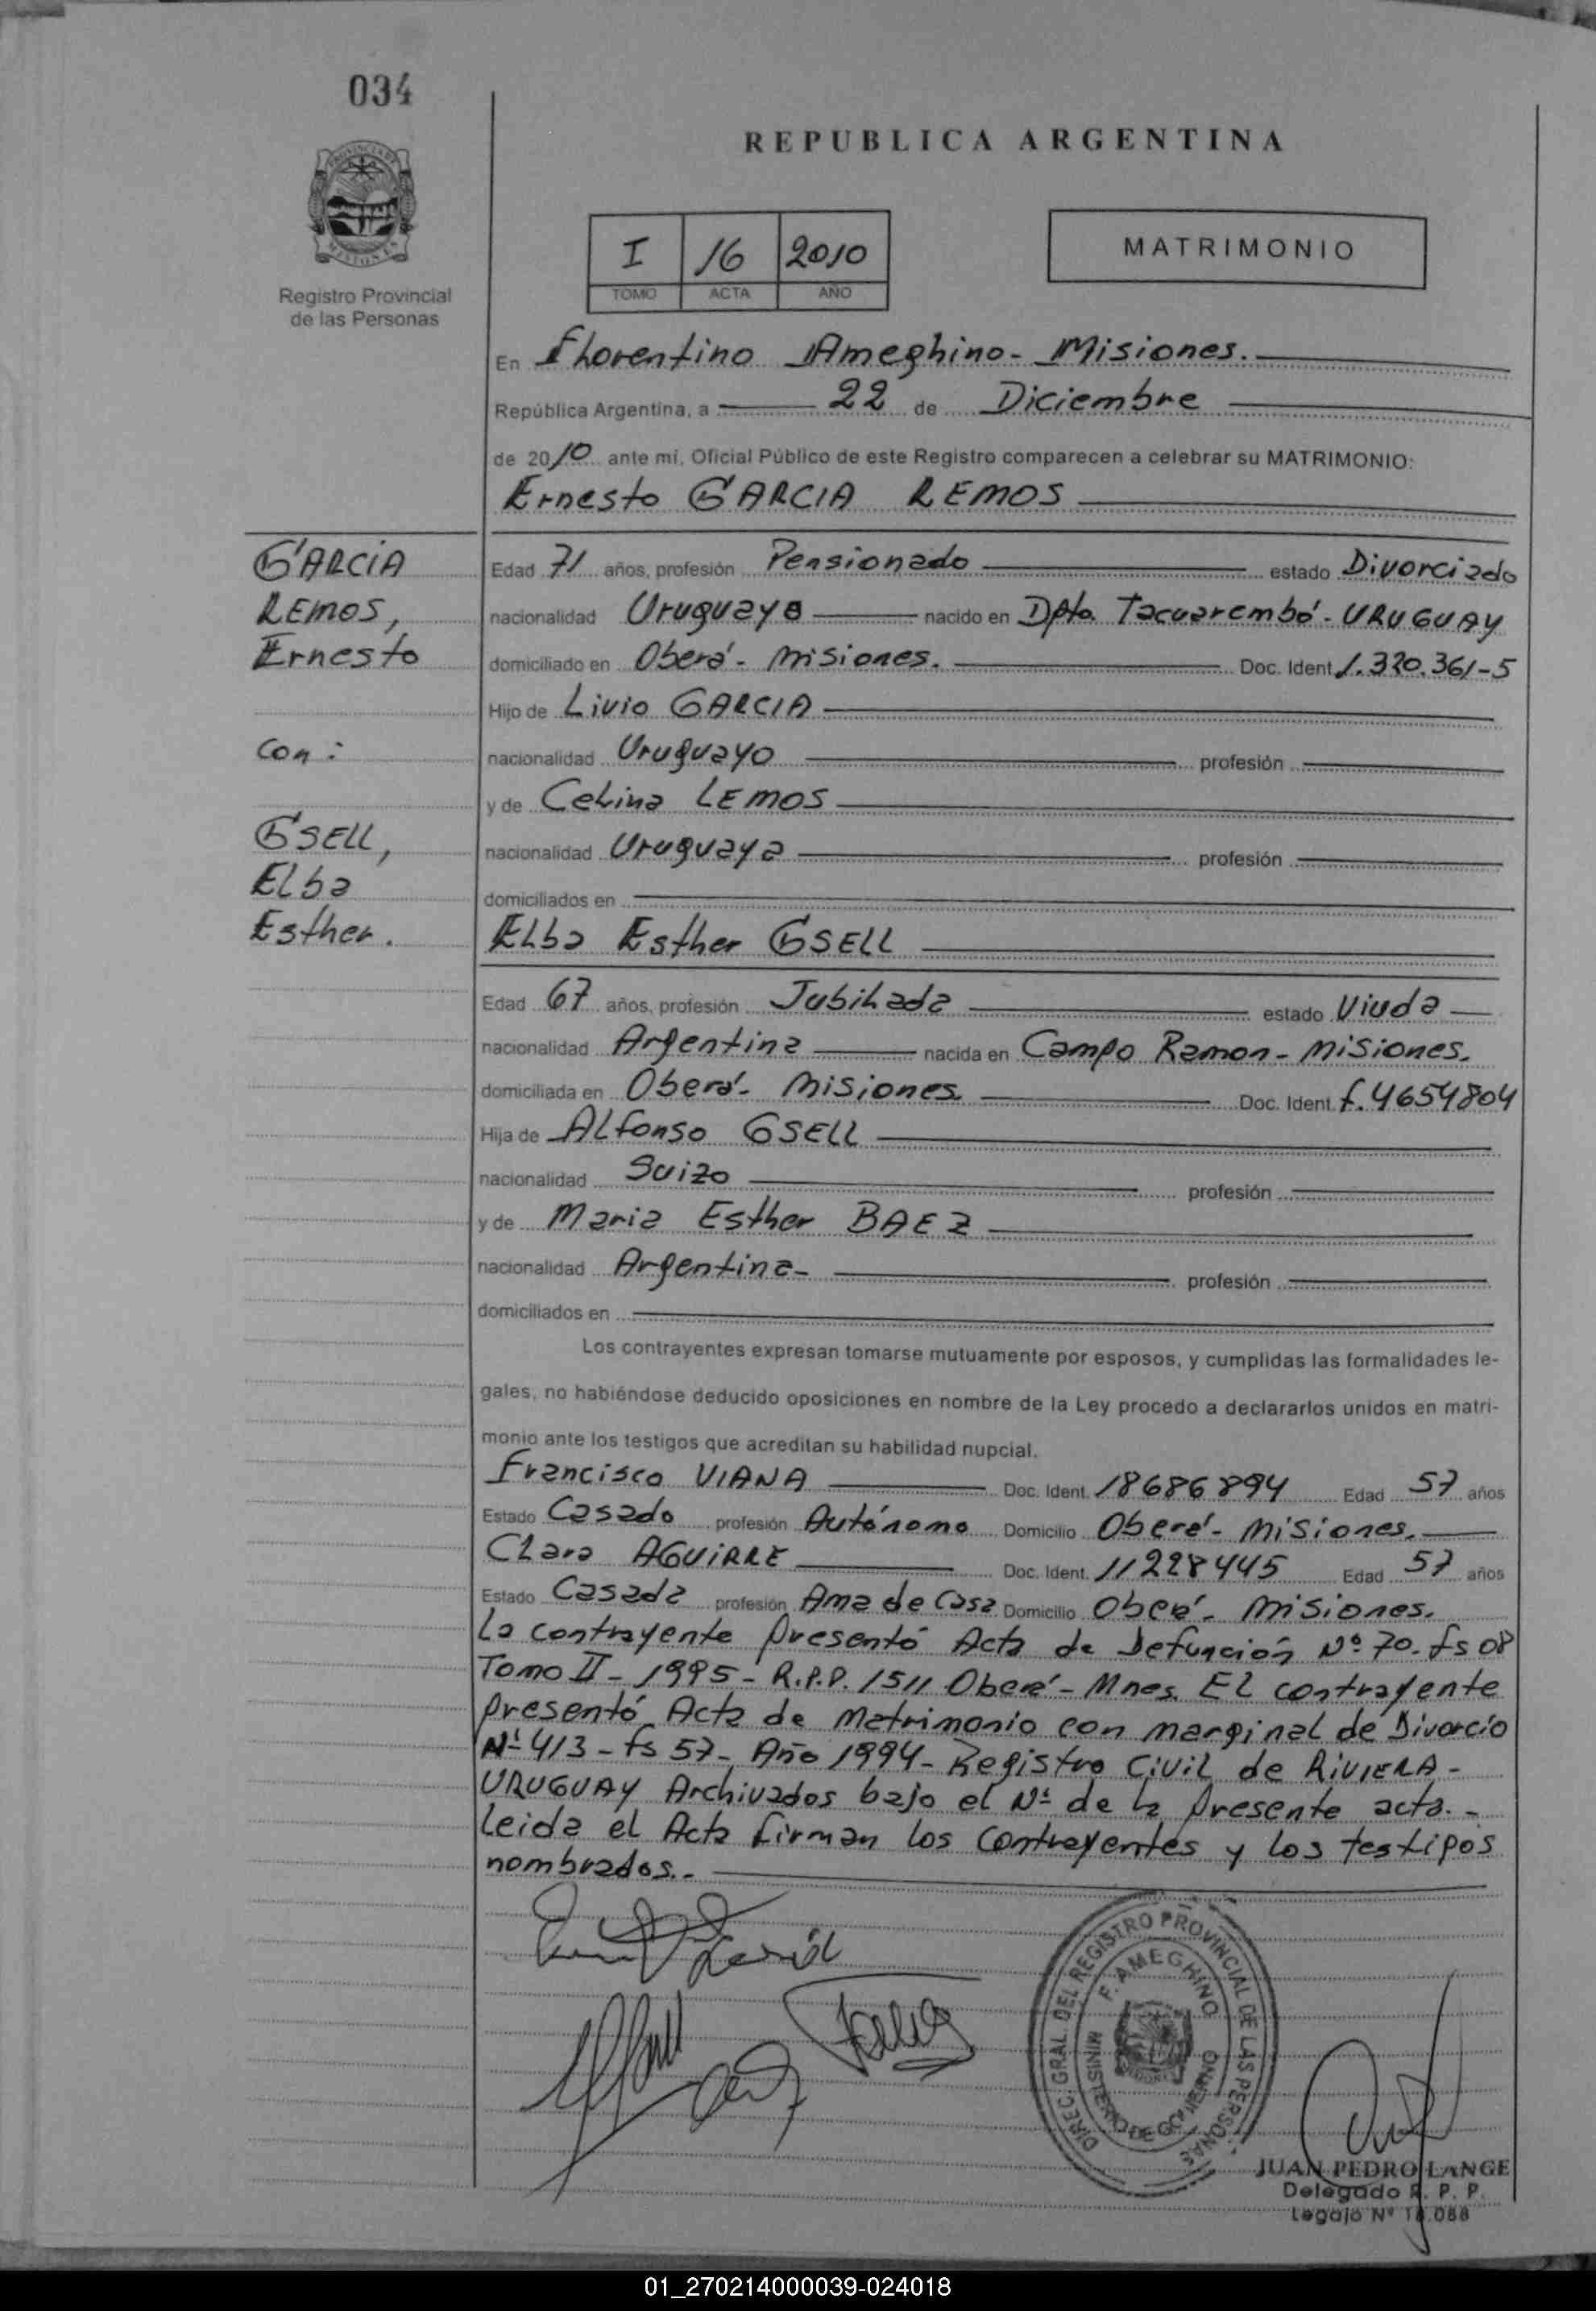 034
REPUBLICA ARGENTINA
PROVINCIA DE
MISIONES
Registro Provincial
de las Personas
I 16 2010
TOMO ACTA AÑO
MATRIMONIO
En Florentino Ameghino - Misiones.
República Argentina, a 22 de Diciembre
de 2010 ante mí, Oficial Público de este Registro comparecen a celebrar su MATRIMONIO:
Ernesto GARCIA LEMOS
GARCIA
LEMOS,
Ernesto
con:
GSELL,
Elba
Esther.
Edad 71 años, profesión Pensionado estado Divorciado
nacionalidad Uruguayo nacido en Dpto. Tacuarembó - URUGUAY
domiciliado en Oberá - Misiones. Doc. Ident. 1.320.361-5
Hijo de Livio GARCIA
nacionalidad Uruguayo profesión
y de Celina LEMOS
nacionalidad Uruguaya profesión
domiciliados en
Elba Esther GSELL
Edad 67 años, profesión Jubilada estado Viuda
nacionalidad Argentina nacida en Campo Ramon - Misiones.
domiciliada en Oberá - Misiones Doc. Ident. f. 4654804
Hija de Alfonso GSELL
nacionalidad Suizo profesión
y de Maria Esther BAEZ
nacionalidad Argentina - profesión
domiciliados en
Los contrayentes expresan tomarse mutuamente por esposos, y cumplidas las formalidades le-
gales, no habiéndose deducido oposiciones en nombre de la Ley procedo a declararlos unidos en matri-
monio ante los testigos que acreditan su habilidad nupcial.
Francisco VIANA Doc. Ident. 18686894 Edad 57 años
Estado Casado profesión Autónomo Domicilio Oberá - Misiones.
Clara AGUIRRE Doc. Ident. 11228445 Edad 57 años
Estado Casada profesión Ama de Casa Domicilio Oberá - Misiones.
La contrayente presentó Acta de Defunción Nº 70 - fs 08
Tomo II - 1995 - R.P.P. 1511 Oberá - Mnes. El contrayente
presentó Acta de Matrimonio con marginal de Divorcio
Nº 413 - fs 57 - Año 1994 - Registro Civil de RIVIERA -
URUGUAY Archivados bajo el Nº de la presente acta. -
Leida el Acta firman los contrayentes y los testigos
nombrados. -
DIREC. GRAL. DEL REGISTRO PROVINCIAL DE LAS PERSONAS
F. AMEGHINO
MINISTERIO DE GOBIERNO
JUAN PEDRO LANGE
Delegado R. P. P.
Legajo Nº
01_270214000039-024018